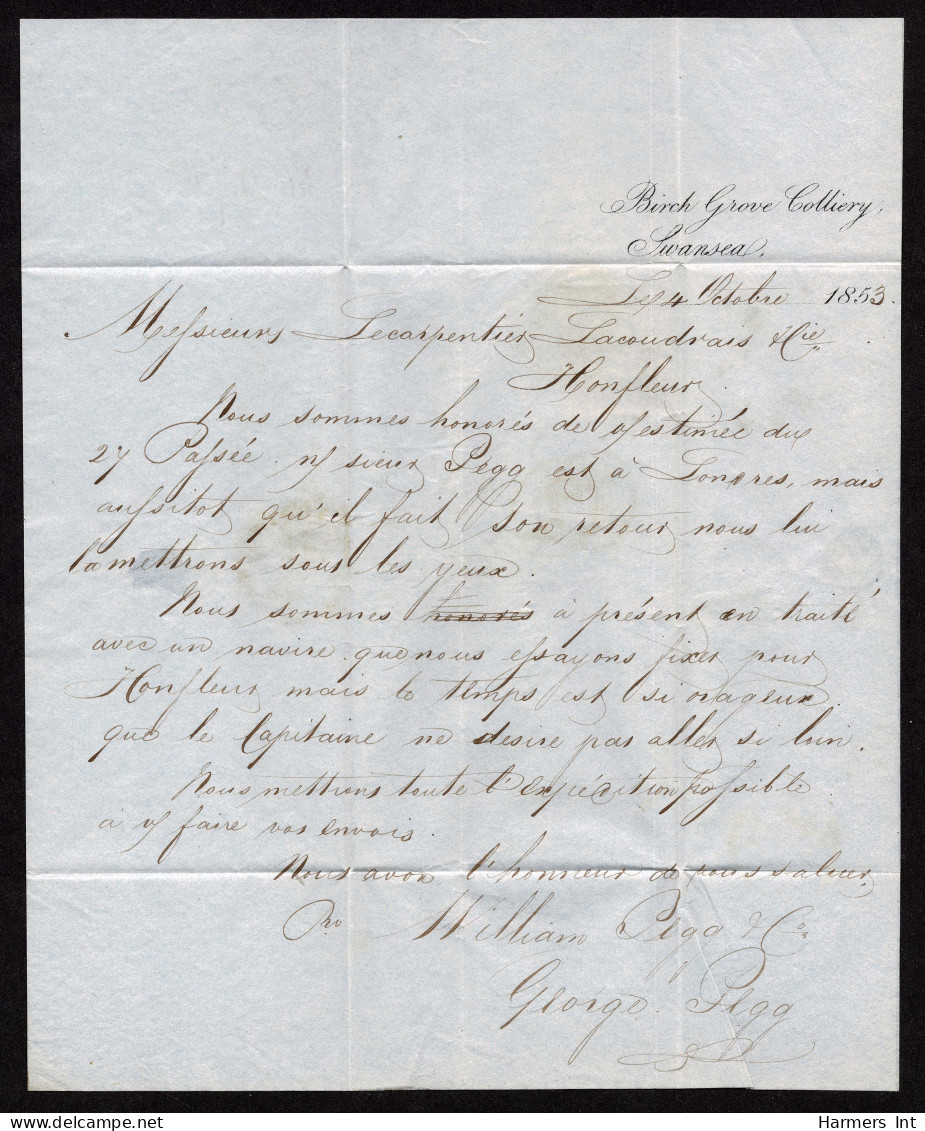 Birch Grove Colliery,
Swansea,
Le 4 Octobre 1853.
Messieurs Lecarpentier Lacoudrais & Cie
Honfleur
Nous sommes honorés de vs estimée du
27 Passée. ns sieur Pegg est à Londres, mais
aussitot qu'il fait son retour nous lui
la mettrons sous les yeux.
Nous sommes honorés à présent en traité
avec un navire que nous essayons fixer pour
Honfleur mais le temps est si orageux
que le Capitaine ne desire pas aller si loin.
Nous mettrons toute l'expédition possible
a vs faire vos envois.
Nous avon l'honneur de vous saluer,
Pro William Pegg & Co
George Pegg
Harmers Int